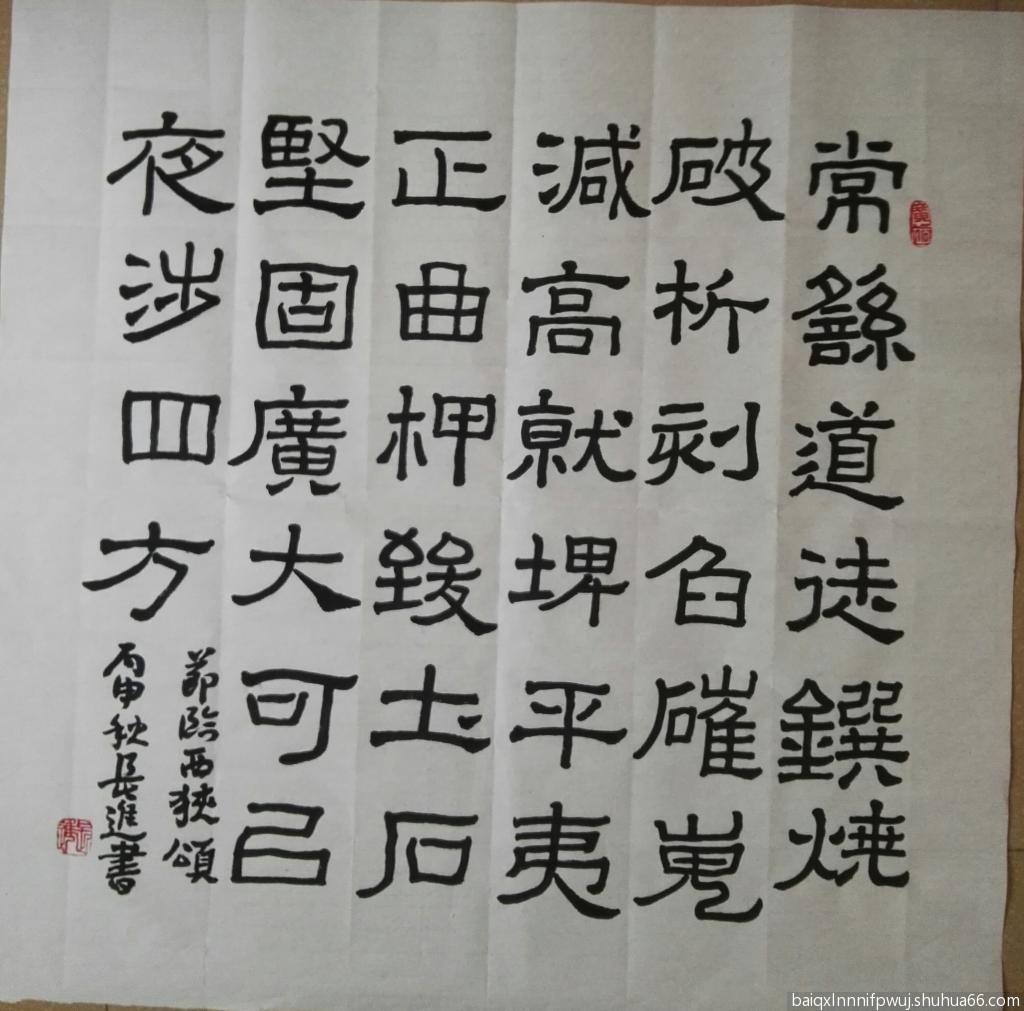 常繇道徒鐉燒
破析刻臽磪嵬
減高就埤平夷
正曲柙致土石
堅固廣大可㠯
夜涉四方
節臨西狹頌
丙申秋長進書
baiqxlnnnifpwuj.shuhua66.com